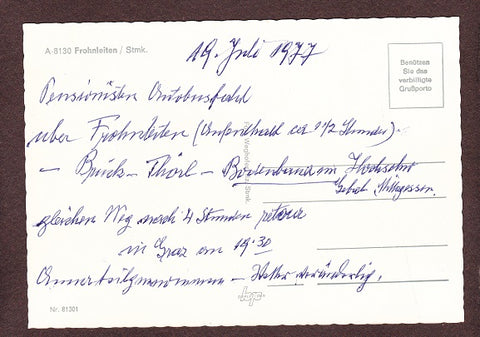 A-8130 Frohnleiten / Stmk.
19. Juli 1977
Benützen
Sie das
verbilligte
Grußporto
Pensionisten Autobusfahrt
über Frohnleiten (Aufenthalt ca 1 1/2 Stunden).
— Bruck — Thörl — Bodenbauer im Hochschw
Gebiet, Mittagessen.
gleichen Weg nach 4 Stunden retour
in Graz an 19.30
Wetter veränderlich.
Nr. 81301